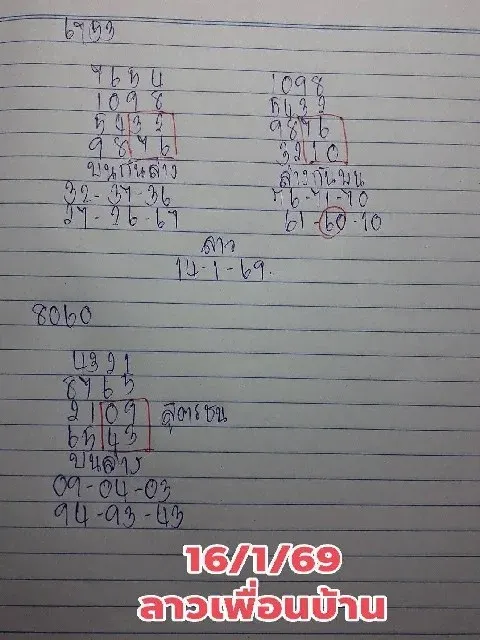 6753
7654
1098
5432
9876
บนกันล่าง
32-37-36
27-26-67
1098
5432
9876
3210
ล่างกันบน
76-71-70
61-60-10
ลาว
14-1-69.
8060
4321
8765
2109
6543
สูตรชน
บนล่าง
09-04-03
94-93-43
16/1/69
ลาวเพื่อนบ้าน